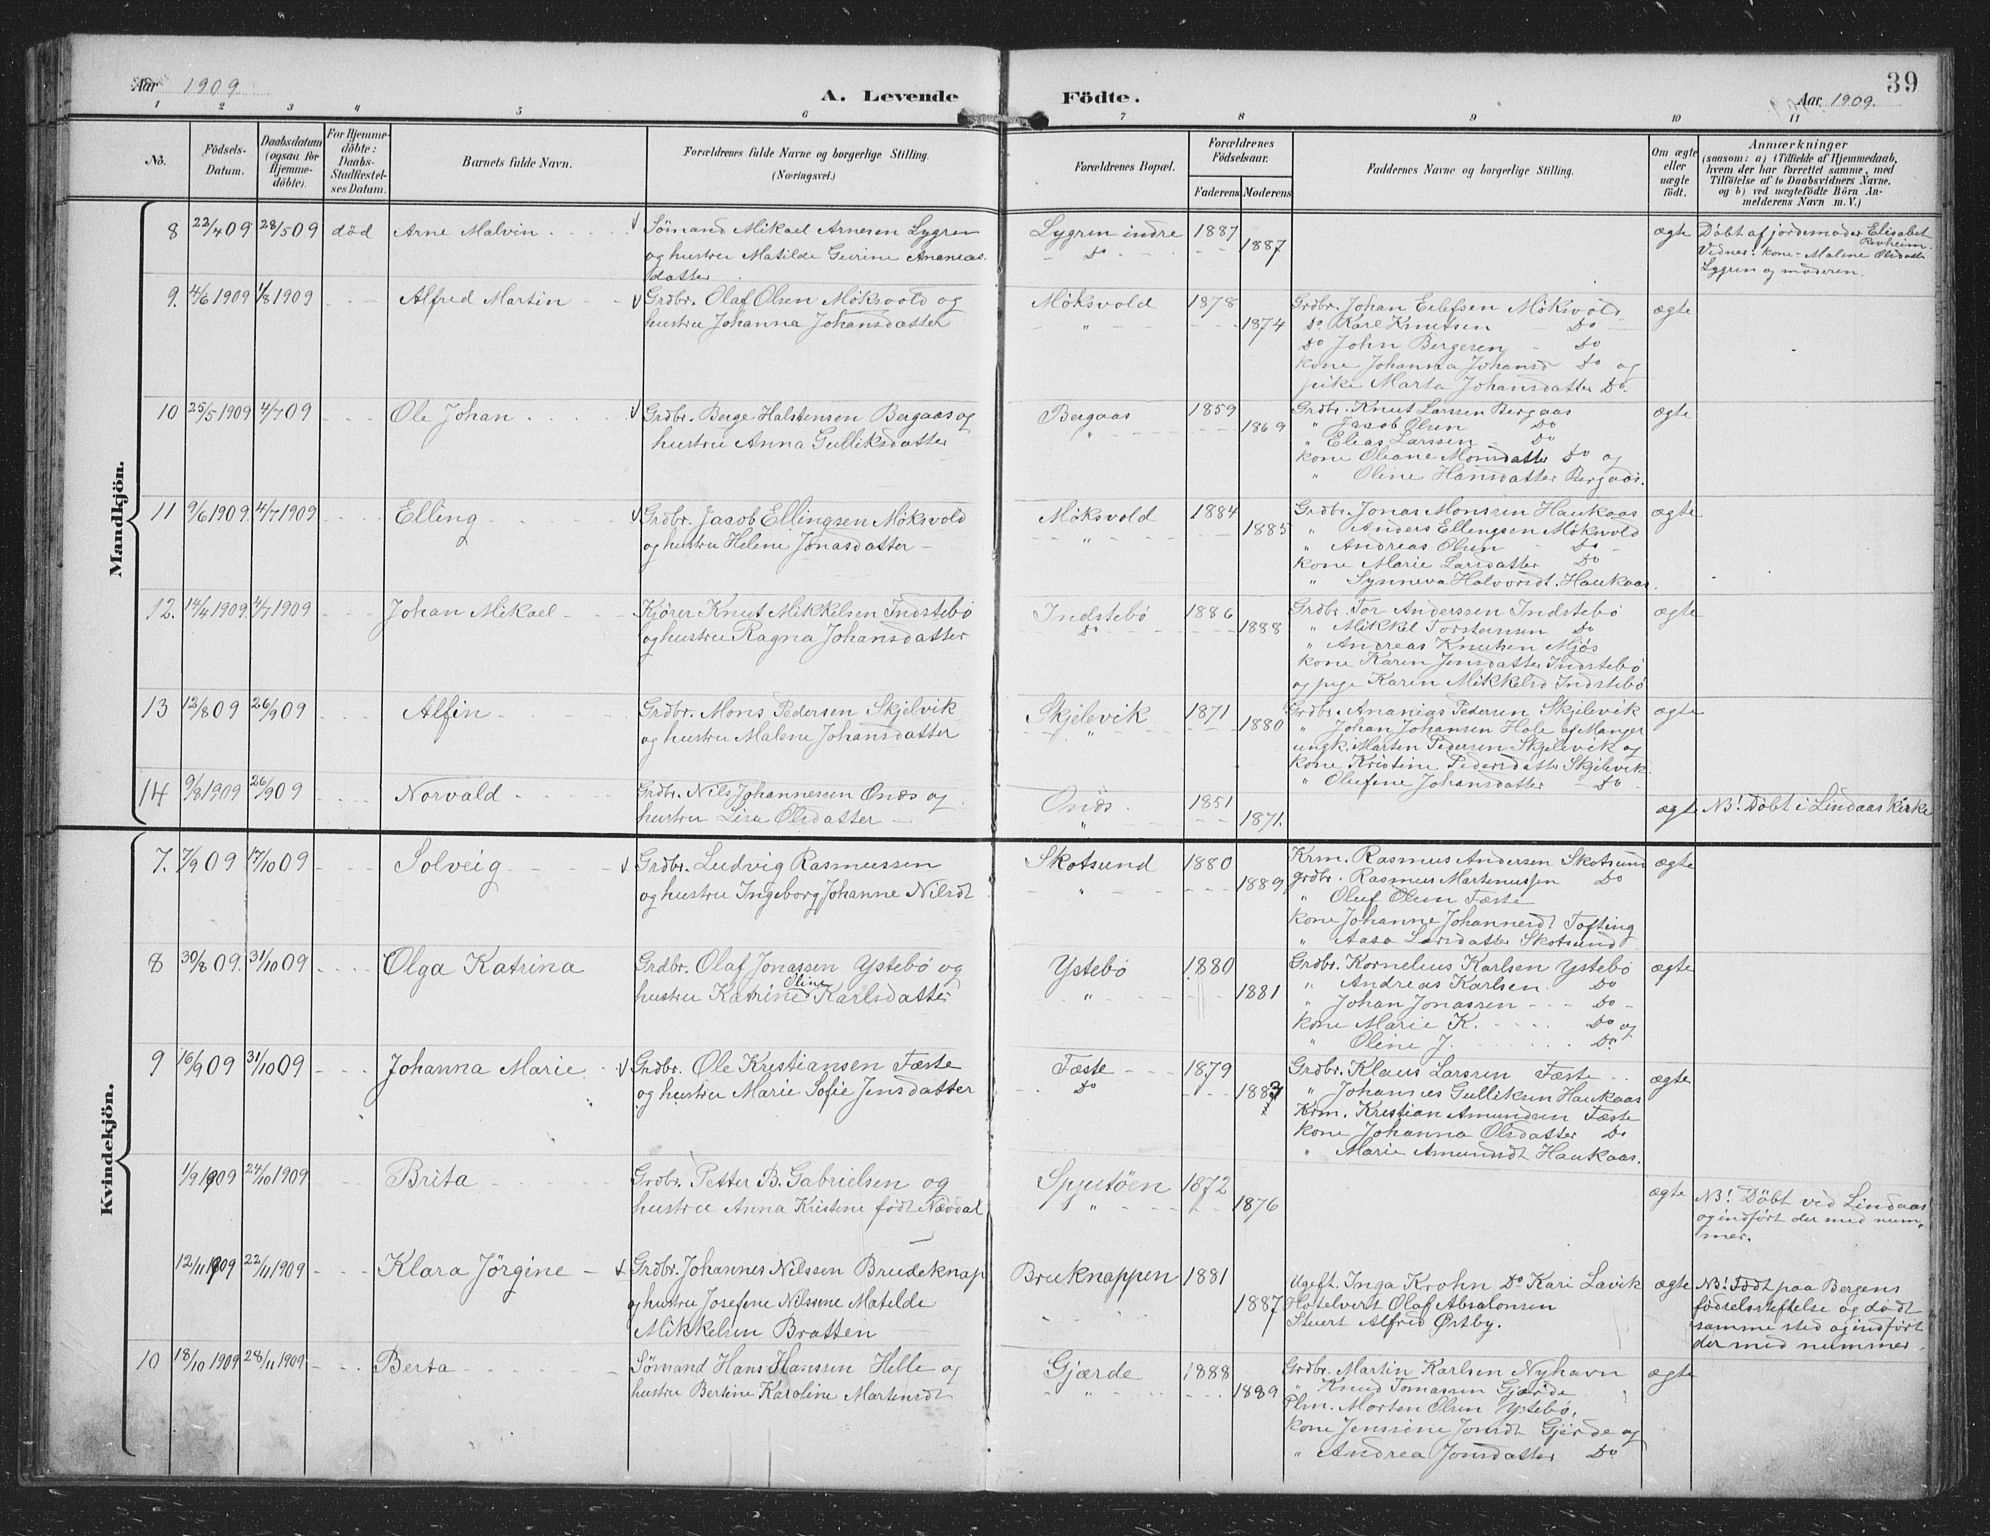 Aar 1909.
A. Levende Födte.
39
Aar 1909.
1 2 3 4 5 6 7 8 9 10 11
No.
Födsels-Datum.
Daabsdatum (ogsaa for Hjemme-döbte).
For Hjemme-döbte: Daabs-Stadfæstel-ses Datum.
Barnets fulde Navn.
Forældrenes fulde Navne og borgerlige Stilling. (Næringsvei.)
Forældrenes Bopæl.
Forældrenes Födselsaar.
Faderens Moderens
Faddernes Navne og borgerlige Stilling.
Om ægte eller uægte födt.
Anmærkninger
(saasom: a) i Tilfælde af Hjemmedaab, hvem der har forrettet samme, med Tilföielse af to Daabsvidners Navne, og b) ved uægtefödte Börn An-melderens Navn m. V.)
Mandkjön.
8 22/4 09 28/5 09 död Arne Malvin √ Sömand Mikael Arnesen Lygren Lygren indre 1887 ægte Döbt af jordemoder Elisabet Revheim.
og hustru Matilde Gurine Ananias- Do 1887 Vidner: kone Malene Olsdatter
datter Lygren og moderen.
9. 4/6 1909 1/8 1909 Alfred Martin √ Grdbr. Olaf Olsen Möksvold og Möksvold 1878 Grdbr. Johan Eilefsen Möksvold ægte
hustru Johanna Johansdatter " 1874 Do Karl Knutsen Do
Do John Bergesen Do
kone Johanna Johansd Do og
pike Marta Johansdatter Do.
10 25/5 1909 4/7 09 Ole Johan √ Grdbr. Berge Halstensen Bergaas og Bergaas 1859 Grdbr. Knut Larssen Bergaas ægte
hustru Anna Gulliksdatter " 1869 " Jacob Olsen Do
" Elias Larssen Do
kone Oleane Monsdatter Do og
" Oline Hansdatter Bergaas.
11 9/6 1909. 4/7 1909 Elling √ Grdbr. Jacob Ellingsen Möksvold Möksvold 1884 Grdbr. Jonas Monssen Haukaas ægte
og hustru Helene Jonasdatter " 1885 " Anders Ellingsen Möksvold
" Andreas Olsen Do
kone Marie Larsdatter Do
" Synneva Halvorsdt. Haukaas.
12. 14/4 1909 4/7 1909 Johan Mikael Kjörer Knut Mikkelsen Indstebö Indstebö 1886 Grdbr. Tor Anderssen Indstebö ægte
og hustru Ragna Johansdatter Do 1888 " Mikkel Torsteinsen Do
" Andreas Knutsen Mjös
kone Karen Jensdatter Indstebö
og pige Karen Mikkelsd Indstebö
13 12/8 09 26/9 09 Alfin Grdbr. Mons Pedersen Skjelvik Skjelevik 1871 Grdbr. Ananias Pedersen Skjelevik ægte
og hustru Malene Johansdatter " 1880 " Johan Johansen Hole af Manger
ungk. Marten Pedersen Skjelevik og
kone Kristine Pedersdatter Skjelevik
" Olufine Johansdatter Do
14 9/8 1909 26/9 09 Norvald Grdbr. Nils Johannesen Onæs og Onæs. 1851
hustru Lisa Olsdatter " 1871. ægte NB! Döbt i Lindaas kirke
Kvindekjön.
7. 7/9 09 17/10 09 Solveig √ Grdbr. Ludvig Rasmussen Skotsund 1880 Krm. Rasmus Andersen Skotsund ægte
og hustru Ingeborg Johanne Nilsdt " 1889 grdbr. Rasmus Martenussen Do
" Oluf Olsen Fæste
kone Johanne Johannesdt Tofting
" Aasa Larsdatter Skotsund
8 30/8 09. 31/10 09 Olga Katrina Grdbr. Olaf Jonassen Ystebö og Ystebö 1880 Grdbr. Kornelius Karlsen Ystebö ægte
hustru Katrine Oline Karlsdatter " 1881 " Andreas Karlsen. Do
" Johan Jonassen Do
kone Marie K. Do og
" Oline J. Do.
9 16/9 09 31/10 09 Johanna Marie √ Grdbr. Ole Kristiansen Fæste Fæste 1879 Grdbr. Klaus Larssen Fæste ægte
og hustru Marie Sofie Jensdatter Do 1883 " Johannes Gulliksen Haukaas
Krm. Kristian Amundsen Fæste
kone Johanna Olsdatter Do
" Marie Amundsdt Haukaas.
1/9 1909 24/10 1909 Brita Grdbr. Petter B. Gabrielsen og Spjutöen 1872 ægte NB! Döbt ved Lindaas
hustru Anna Kristine födt Nævdal " 1876 og indfört der med num-
mer.
12/11 1909 22/11 1909 Klara Jörgine √ Grdbr. Johannes Nilssen Brudeknap Bruknappen 1881 Ugift. Inga Krohn Do Kari Lavik ægte NB! Födt paa Bergens
og hustru Josefine Nilssine Matilde 1887 Hotelvert Olaf Absalonsen födselsstiftelse og dödt
Mikkelsen Bratten Stuert Alfred Østby. samme sted og indfört
der med nummer.
10 18/10 1909 28/11 1909 Berta Sömand Hans Hanssen Helle og Gjærde 1888 Grdbr. Martin Karlsen Nyhavn ægte
hustru Bertine Karoline Martensdt " 1889 " Knud Tomassen Gjærde
Plm. Morten Olsen Ystebö,
kone Jenssine Jonsdt Gjerde og
" Andrea Jonsdatter Do